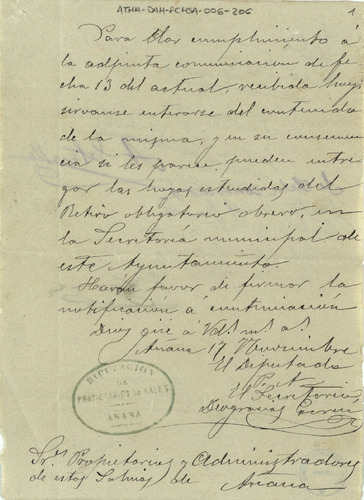 ATHA-DAH-FCHSA-006-206
1
Para dar cumplimiento á
la adjunta comunicacion de fe
cha 13 del actual, recibida hoy,
sirvanse enterarse del contenido
de la misma, y en su consecuen
cia si les parece, pueden entre
gar las hojas estendidas del
Retiro obligatorio obrero, en
la Secretoría municipal de
este Ayuntamiento.
Harán favor de firmar la
notificación á continuación
Dios gue á Vds. ms. as.
Añana 17 Noviembre
El Diputado
El Secretario
Deogracias
DIPUTACION
DE
PROPIETARIOS DE SALES
AÑANA
Srs. Propietarios y Administradores
de estas Salinas de Añana